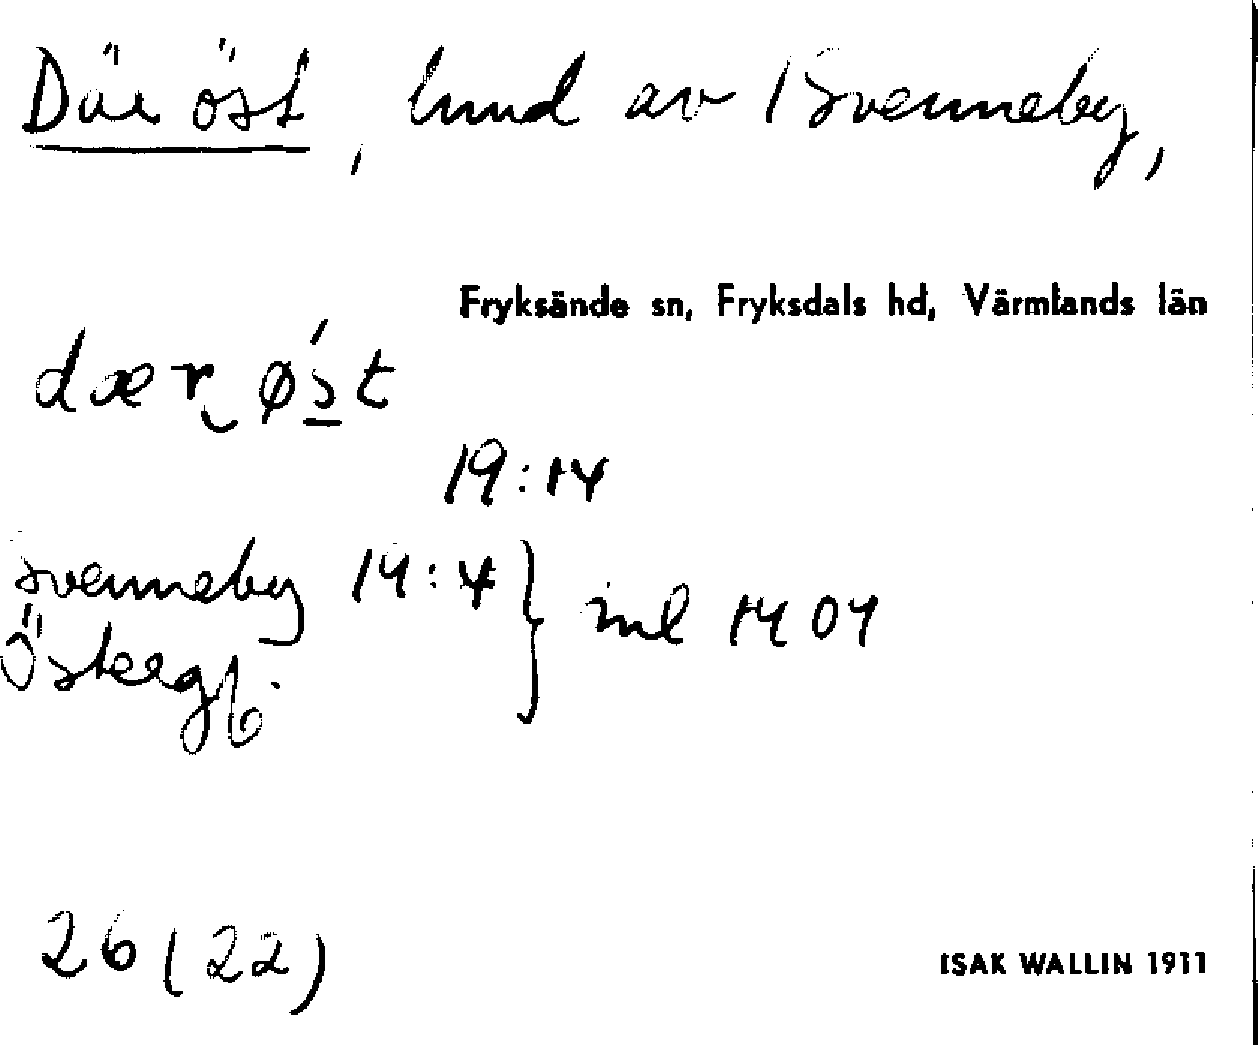 Där öst, hmd av 1 Svenneby,
Fryksände sn, Fryksdals hd, Värmlands län
dær øst
19:14
Svenneby 14:4 } inl 1404
Östergb.
26 (22)
ISAK WALLIN 1911